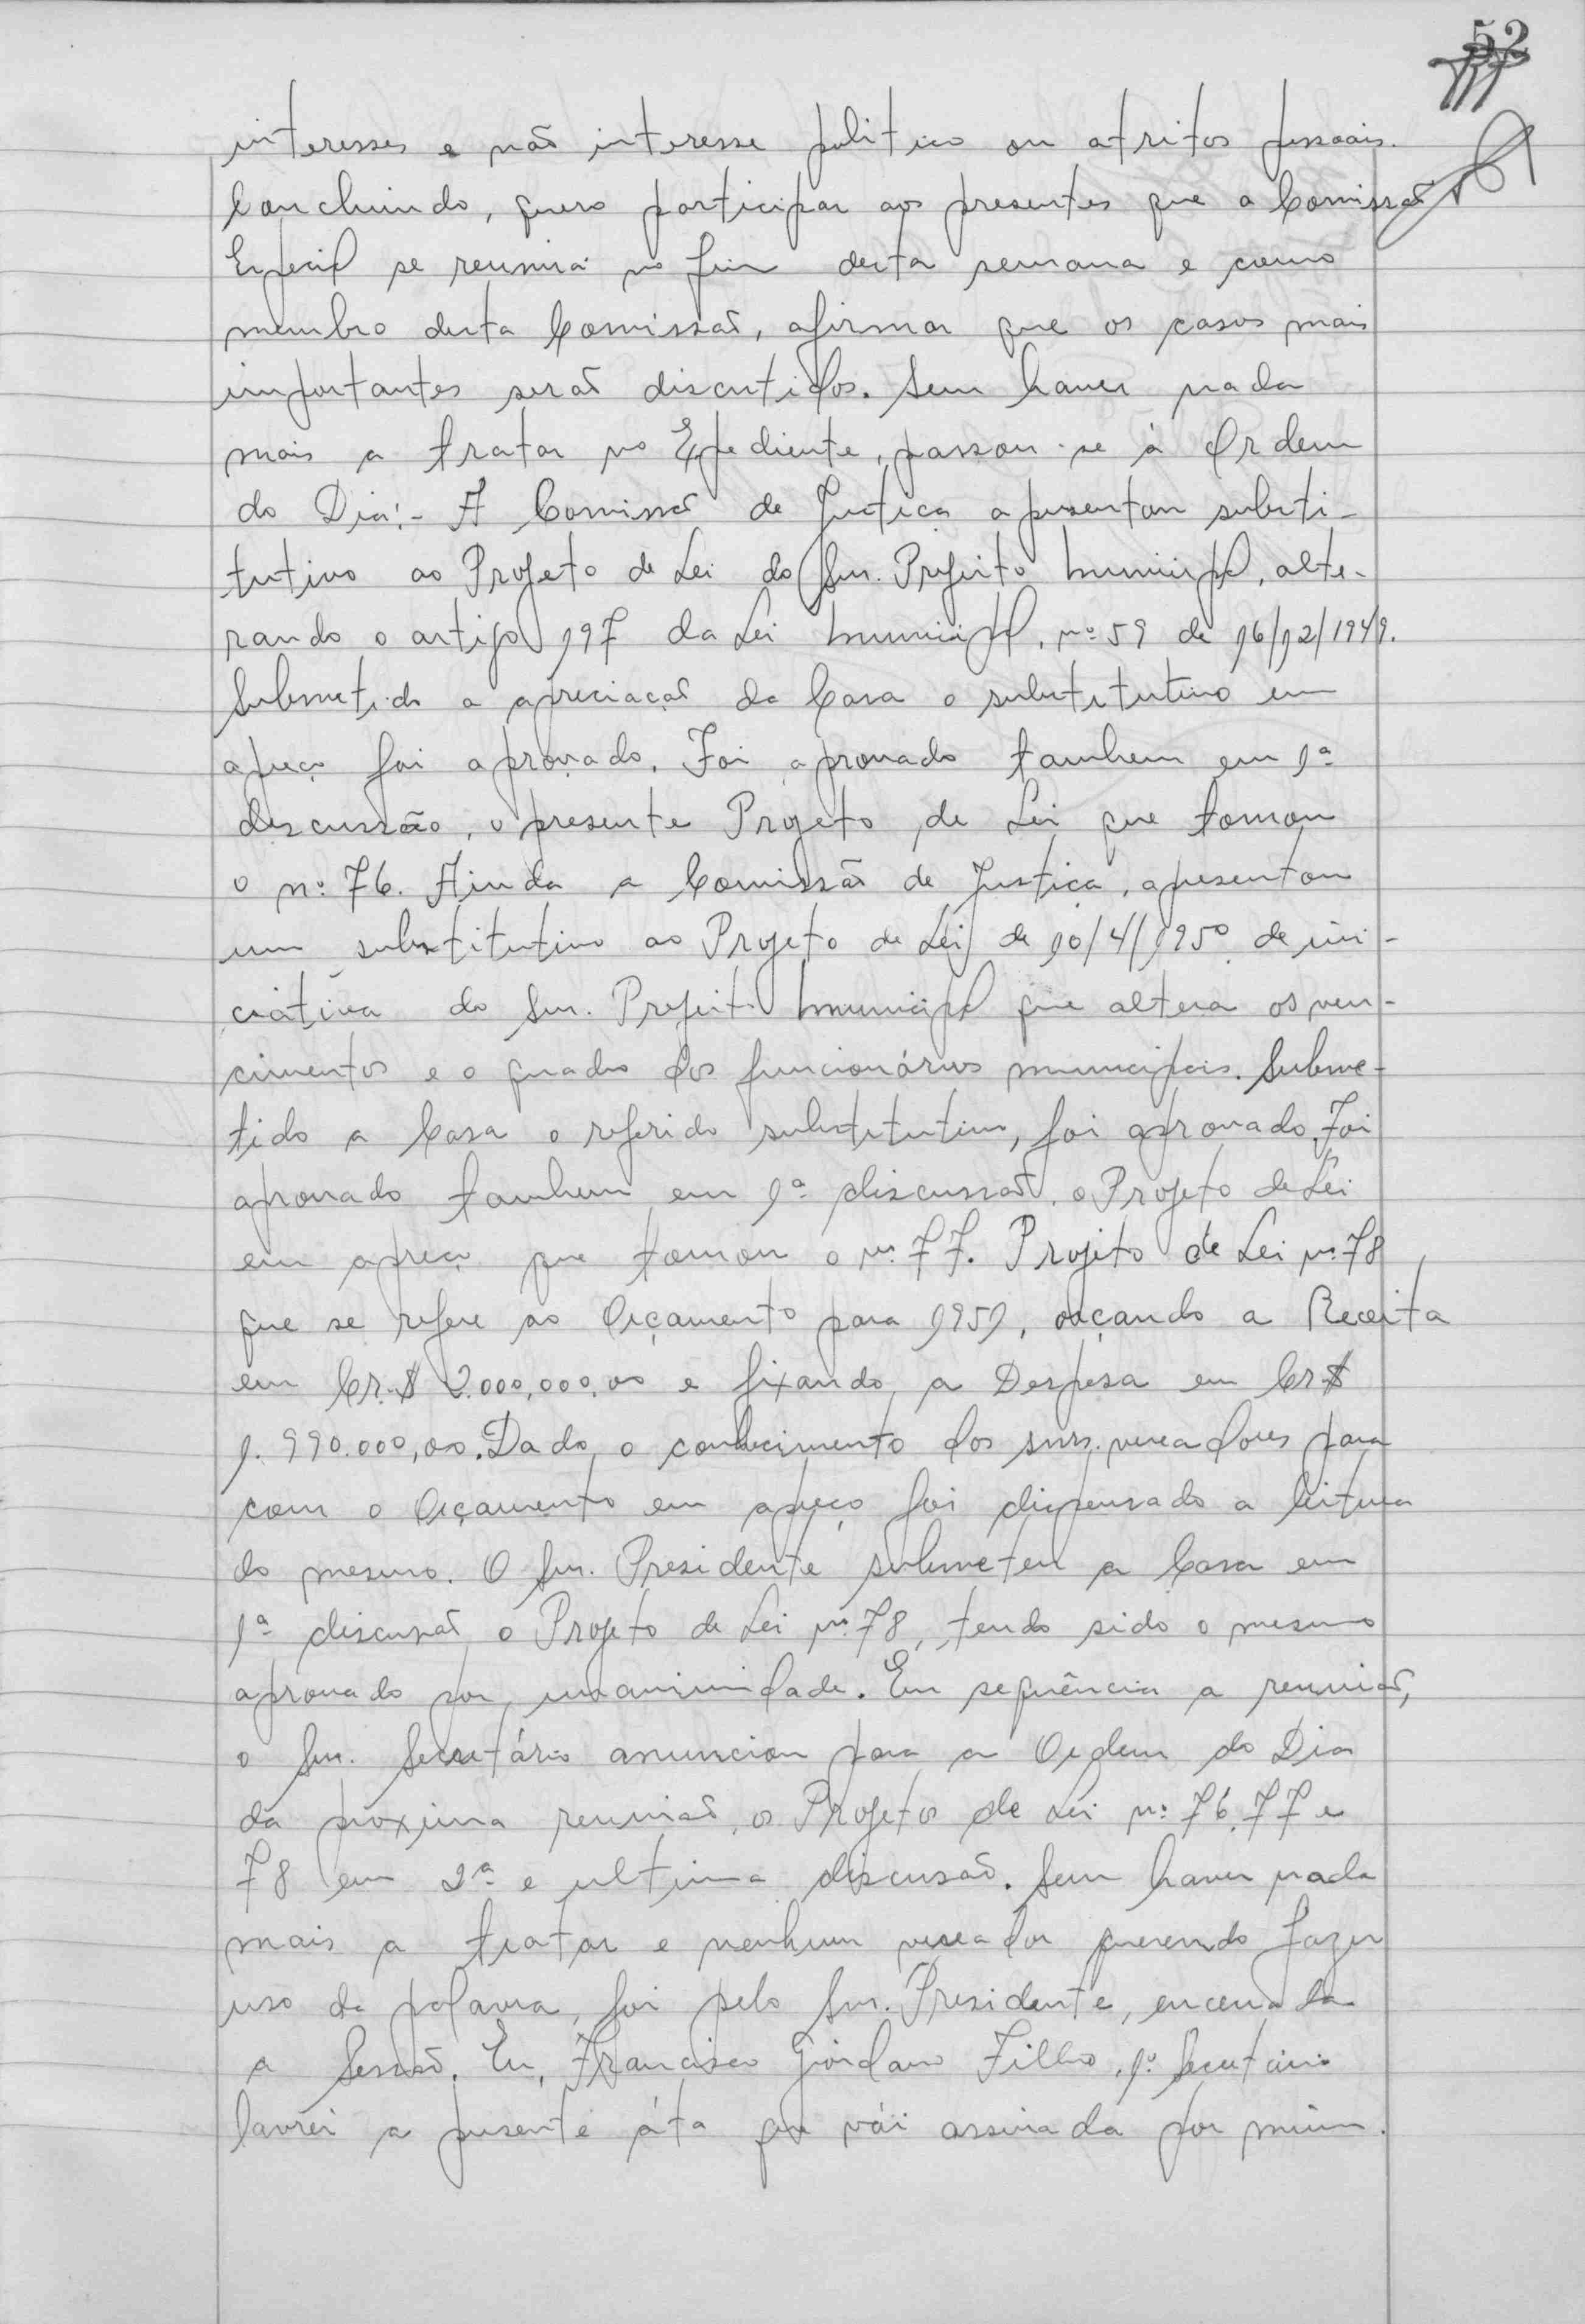 52
interesses e não interesse politico ou atritos pessoais.
Concluindo, quero participar aos presentes que a Comissão
Especial se reunirá no fim desta semana e como
membro desta Comissão, afirmar que os casos mais
importantes serão discutidos. Sem haver nada
mais a tratar no Expediente, passou-se à Ordem
do Dia:- A Comissão de Justiça apresentou substi-
tutivo ao Projeto de Lei do Snr. Prefeito Municipal, alte-
rando o artigo 197 da Lei Municipal, nº 59 de 16/12/1949.
Submetido a apreciação da Casa o substitutivo em
apreço foi aprovado. Foi aprovado tambem em 1ª
discussão, o presente Projeto de Lei que tomou
o nº 76. Ainda a Comissão de Justiça, apresentou
um substitutivo ao Projeto de Lei de 10/4/1950 de ini-
ciativa do Snr. Prefeito Municipal que altera os ven-
cimentos e o quadro dos funcionários municipais. Subme-
tido a Casa o referido substitutivo, foi aprovado. Foi
aprovado tambem em 1ª discussão, o Projeto de Lei
em apreço que tomou o nº 77. Projeto de Lei nº 78
que se refere ao Orçamento para 1951, orçando a Receita
em Cr.$ 2.000.000,00 e fixando a Despesa em Cr$
1.990.000,00. Dado o conhecimento dos snrs. vereadores para
com o Orçamento em apreço foi dispensado a leitura
do mesmo. O Snr. Presidente submeteu a Casa em
1ª discussão o Projeto de Lei nº 78, tendo sido o mesmo
aprovado por unanimidade. Em sequência a reunião,
o Snr. Secretário anunciou para a Ordem do Dia
da próxima reunião, os Projetos de Lei nº 76, 77 e
78 em 2ª e ultima discusão. Sem haver nada
mais a tratar e nenhum vereador querendo fazer
uso da palavra, foi pelo Snr. Presidente, encerrada
a Sessão. Eu, Francisco Giordano Filho, 1º Secretário
lavrei a presente áta que vái assinada por mim.